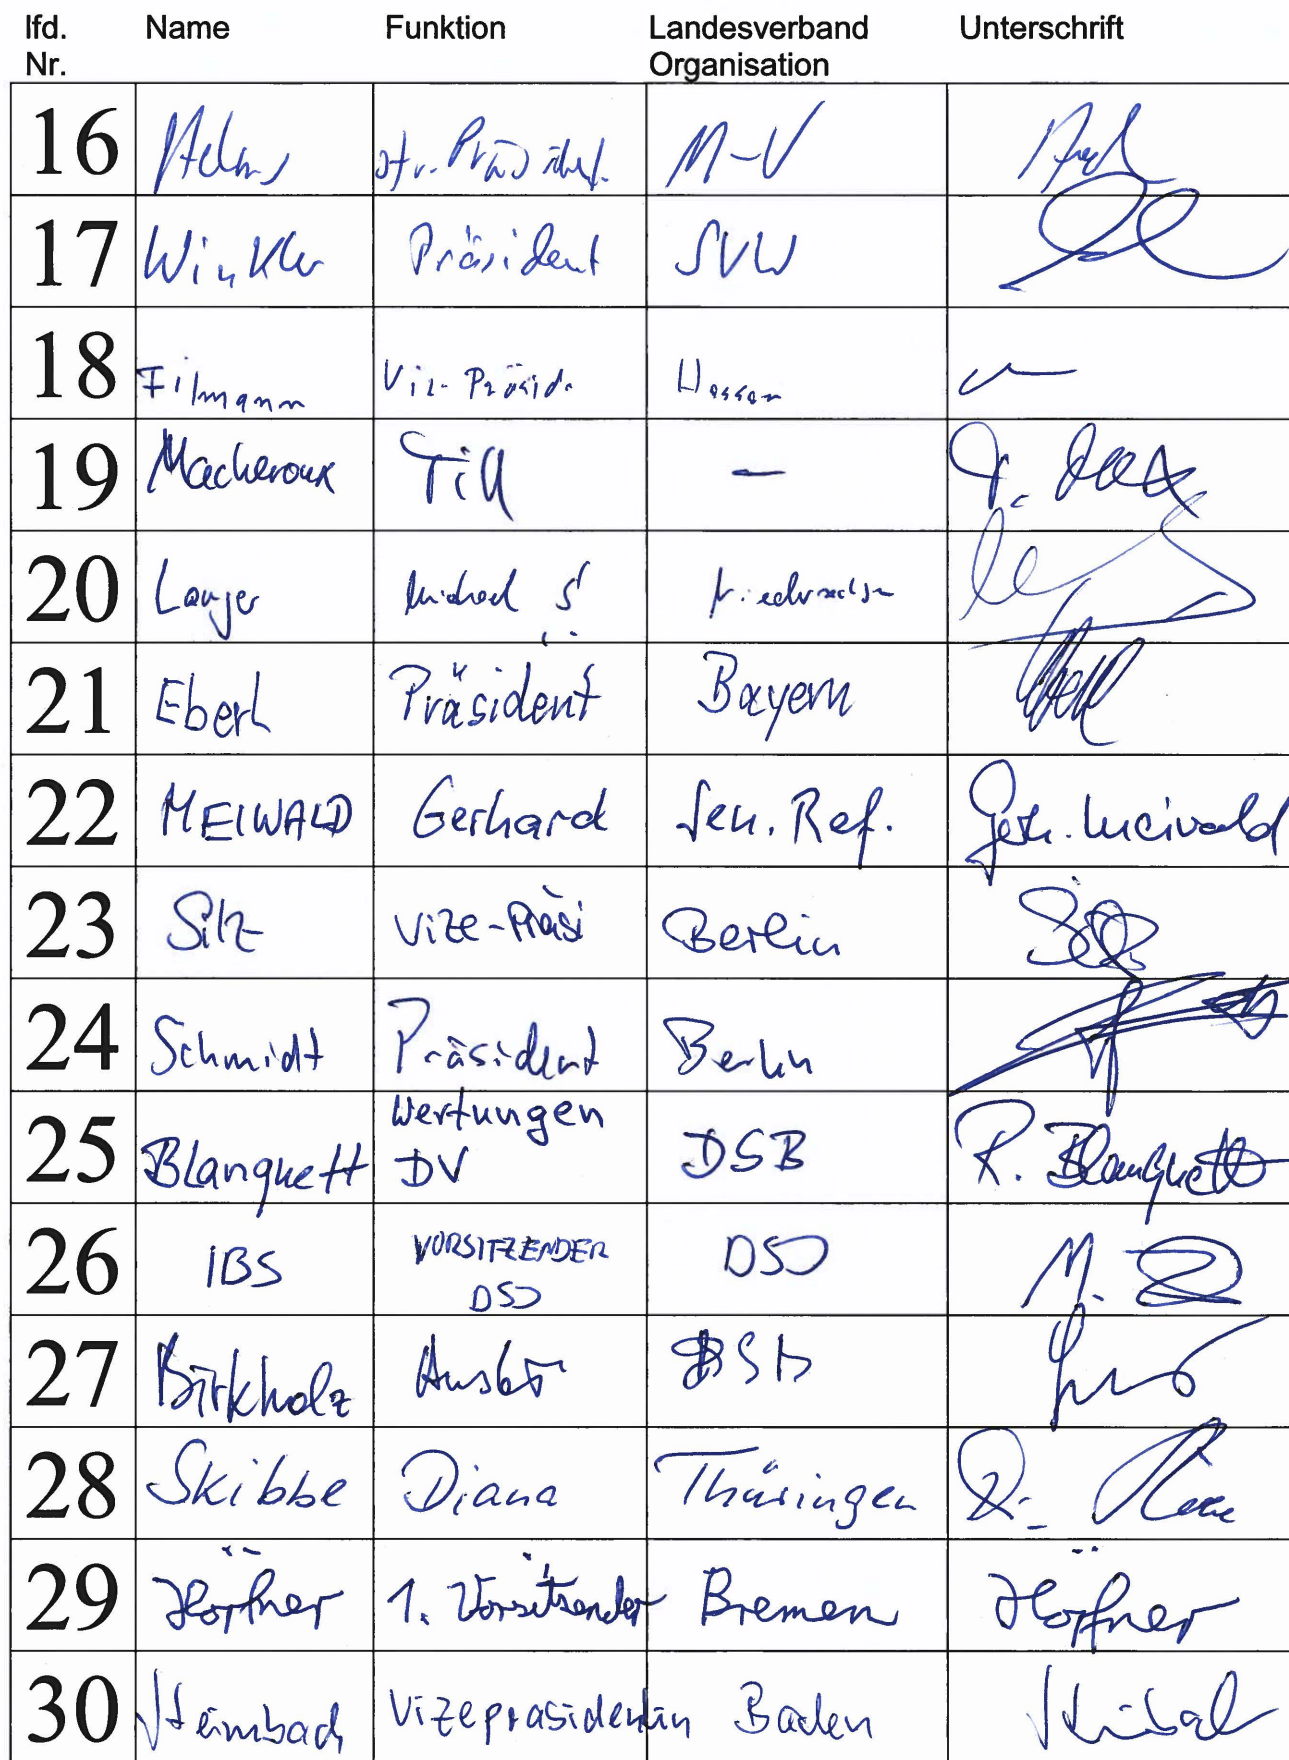 lfd. Name Funktion Landesverband Unterschrift
Nr. Organisation
16 stv. Präsident M-V
17 Winkler Präsident SVW
18 Filmann Viz-Präsid. Hessen
19 Macheroux Till –
20 Langer Michael S. Niedersachsen
21 Eberl Präsident Bayern
22 MEIWALD Gerhard Sen. Ref. Gerh. Meiwald
23 Silz Vize-Präsi Berlin Silz
24 Schmidt Präsident Berlin
Wertungen
25 Blanquett DV DSB R. Blanquett
26 IBS VORSITZENDER DSJ M.
DSJ
27 Birkholz DSB
28 Skibbe Diana Thüringen D.
29 Höpfner 1. Vorsitzender Bremen Höpfner
30 Steimbach Vizepräsidentin Baden